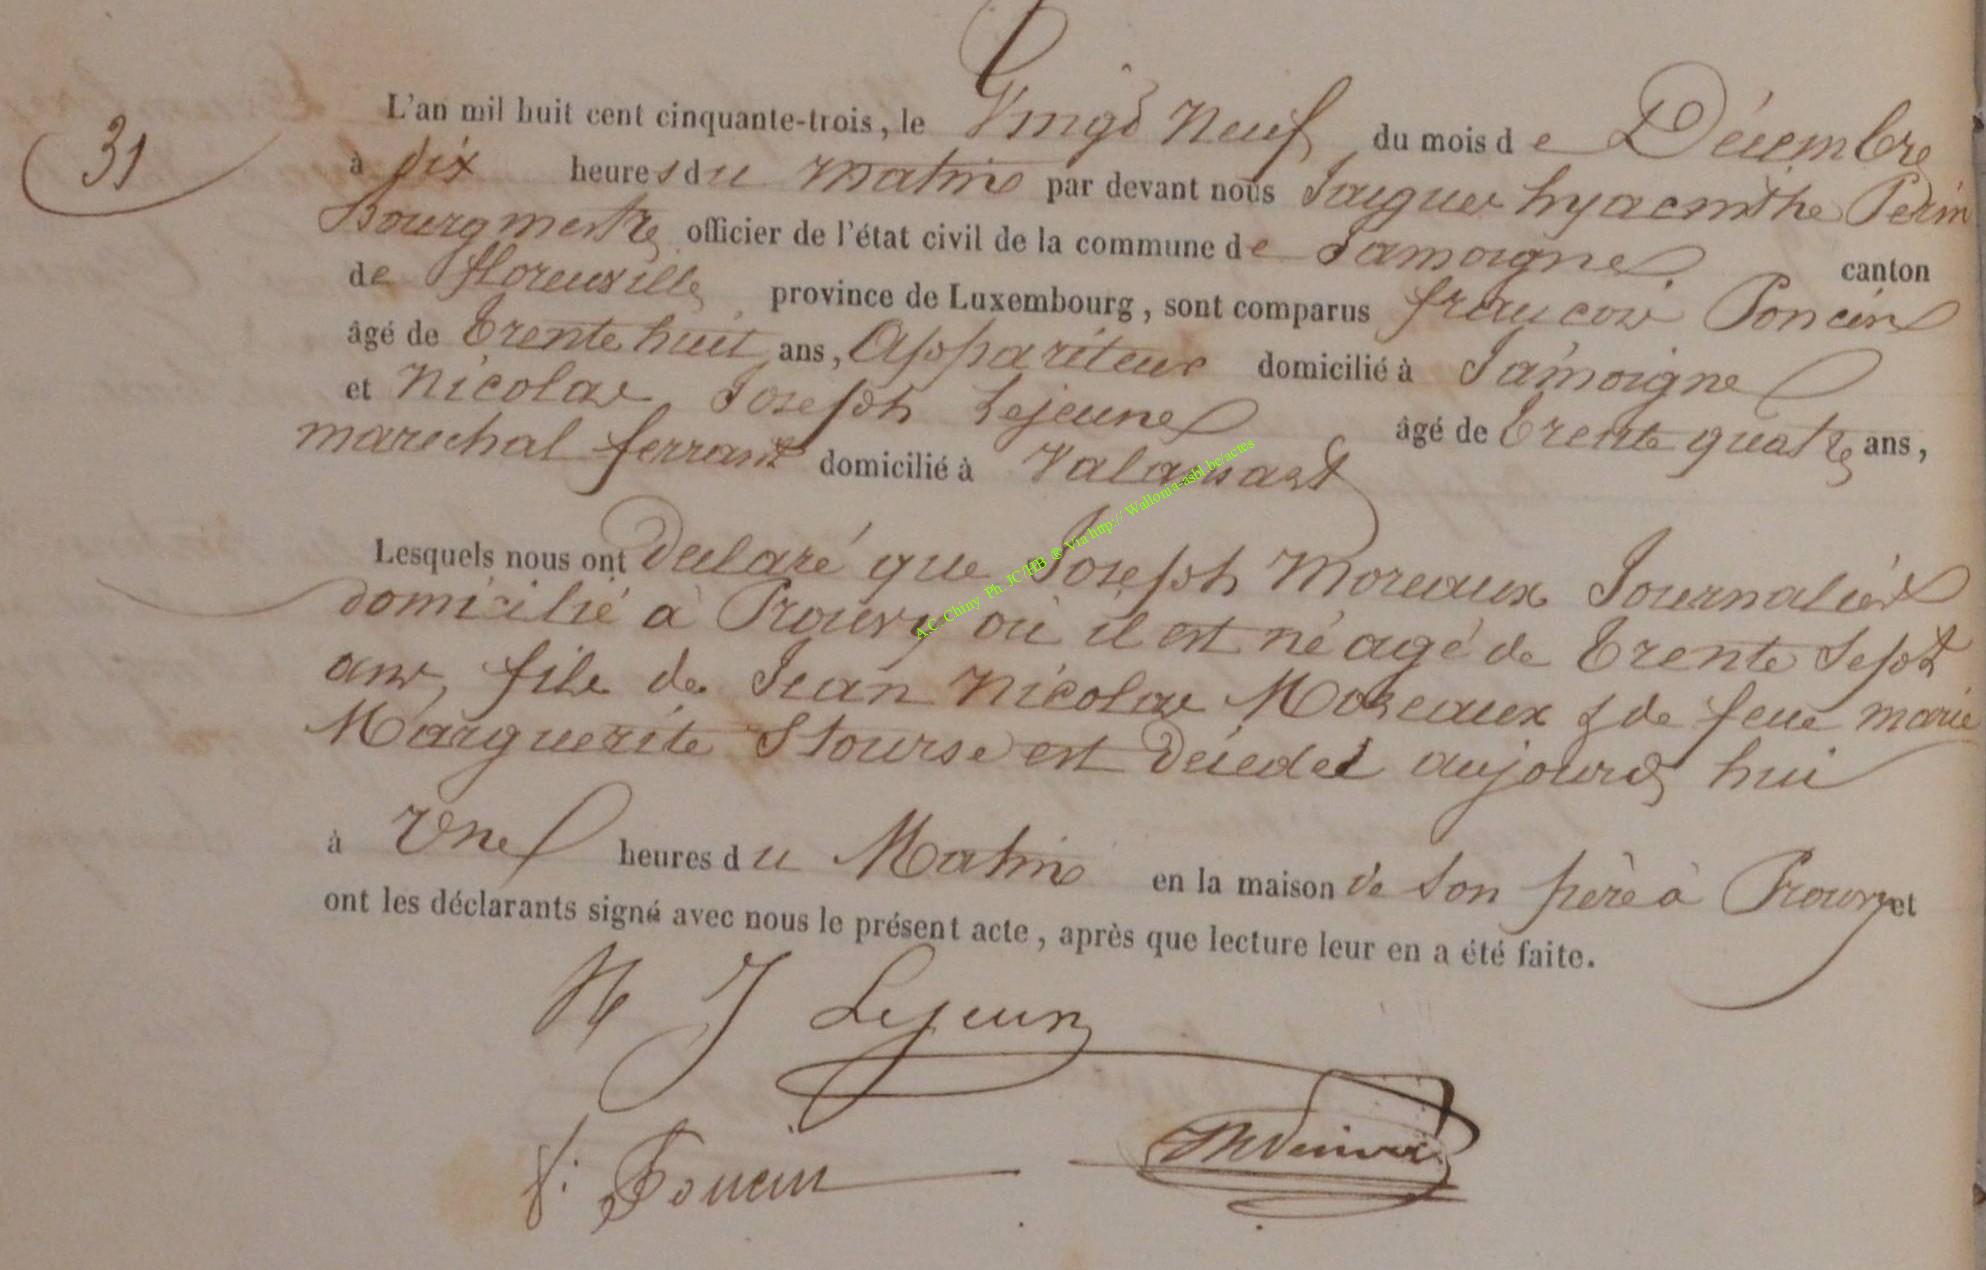 31
L'an mil huit cent cinquante-trois, le Vingt Neuf du mois de Décembre
à dix heures du matin par devant nous Jacques hyacinthe Perin
Bourgmestre officier de l'état civil de la commune de Jamoigne canton
de florenville province de Luxembourg, sont comparus françois Poncin
âgé de trente huit ans, Appariteur domicilié à Jamoigne
et Nicolas Joseph Lejeune âgé de trente quatre ans,
marechal ferrant domicilié à Valansart
Lesquels nous ont déclaré que Joseph Moreaux Journalier
domicilié à Prouvy où il est né agé de trente Sept
ans, fils de Jean Nicolas Moreaux & de feue marie
Marguerite Stourse est décedet aujourd hui
à Une heures du Matin en la maison de son père à Prouvy et
ont les déclarants signé avec nous le présent acte, après que lecture leur en a été faite.
N J Lejeune
f: Poncin
A.C. Chiny Ph. JC/HB ® Via http:// Wallonia-asbl.be/actes